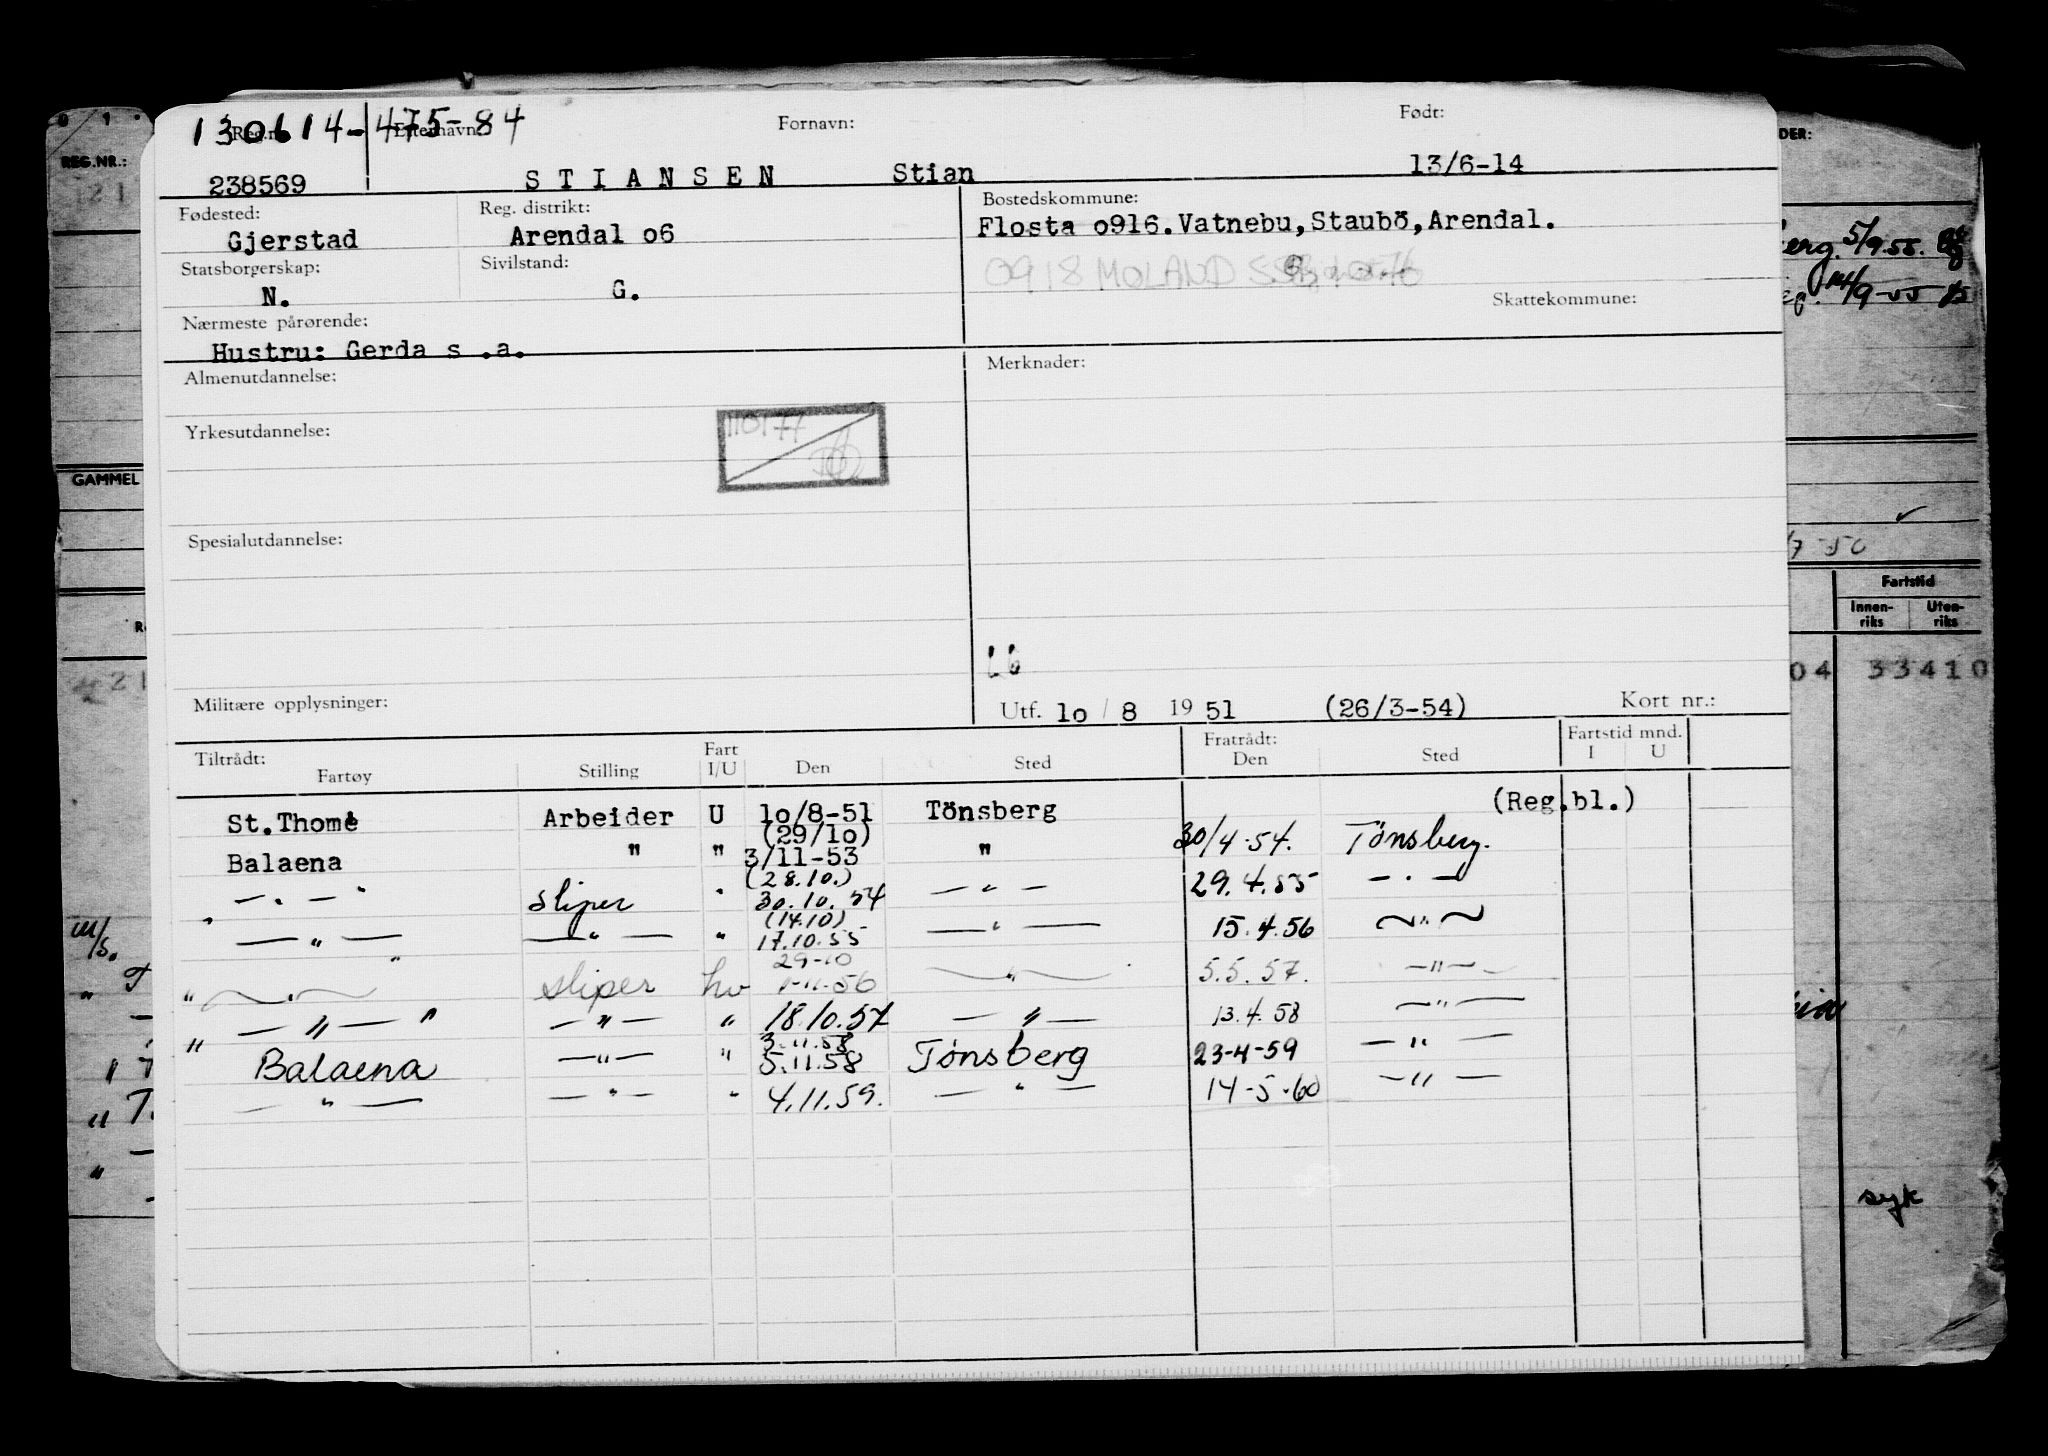 130614-475-84
Reg.nr. Efternavn: Fornavn: Født:
238569 STIANSEN Stian 13/6-14
Fødested: Reg. distrikt: Bostedskommune:
Gjerstad Arendal o6 Flosta o916.Vatnebu,Staubö,Arendal.
Statsborgerskap: Sivilstand: 0918 MOLAND
N. G. Skattekommune:
Nærmeste pårørende:
Hustru: Gerda s .a.
Almenutdannelse: Merknader:
110177
Yrkesutdannelse:
Spesialutdannelse:
Militære opplysninger: Utf. lo / 8 19 51 (26/3-54) Kort nr.:
Tiltrådt: Fart Fratrådt: Fartstid mnd.
Fartøy Stilling I/U Den Sted Den Sted I U
St.Thomé Arbeider U lo/8-51 Tönsberg (Reg.bl.)
(29/lo)
Balaena " " 3/11-53 " 30/4-54. Tönsberg.
(28.10.)
— " — Sliper " 30.10.54 — " — 29.4.55 — " —
(14.10)
" — " — — " — " 17.10.55 — " — 15.4.56 — " —
29-10
" — " — Sliper hv 1-11-56 — " — 5.5.57. — " —
" — " — — " — " 18.10.57 — " — 13.4.58 — " —
3.11.58
" Balaena — " — " 5.11.58 Tønsberg 23-4-59 — " —
— " — — " — " 4.11.59. — " — 14-5-60 — " —
REG.NR.:
GAMMEL
DER:
5/9.55.
14/9-55
/7-50
Fartstid
Innen-riks Uten-riks
04 33410
syk